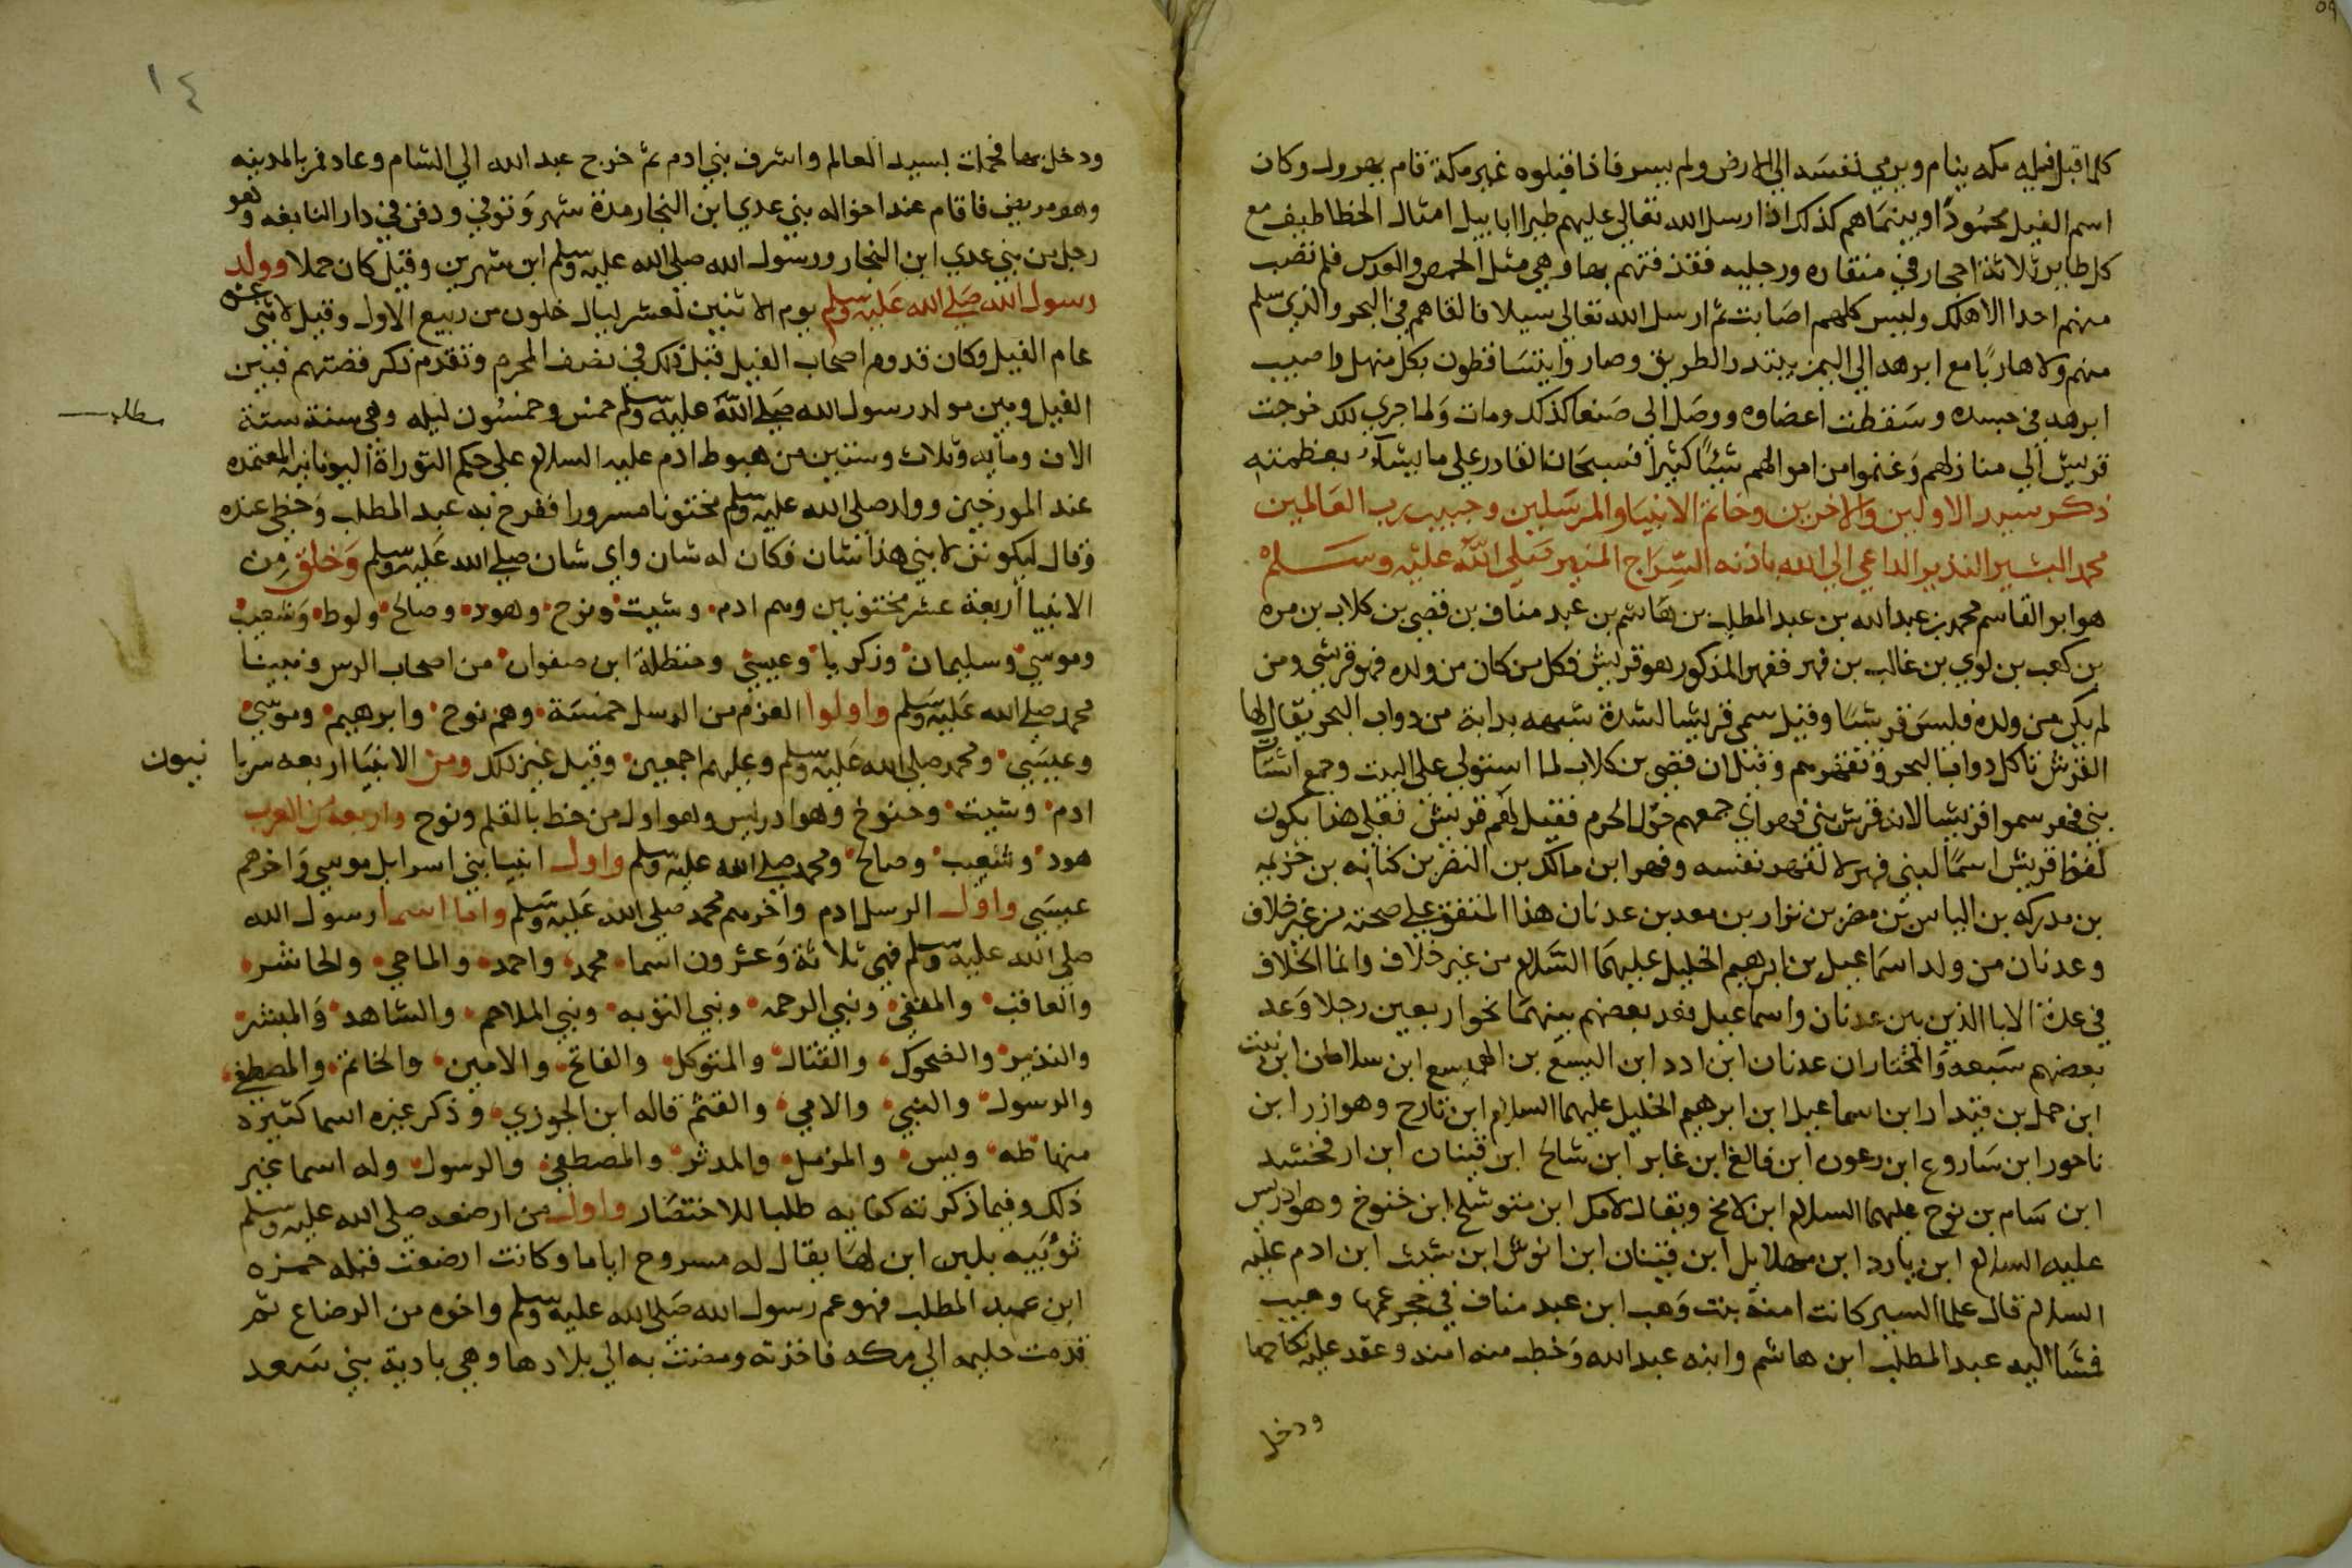 كلما اقبل فيله مكه ينام ويرمي نفسه الي الارض ولم يسر فاذا قبلوه غير مكة قام يهرول وكان
اسم الفيل محمودا وبينما هم كذلك اذ ارسل الله تعالي عليهم طيرا ابابيل امثال الخطاطيف مع
كل طاير ثلاثة احجار في منقاره ورجليه فقذفتهم بها وهي مثل الحمص والعدس فلم تصب
منهم احدا الا هلك وليس كلهم اصابت ثم ارسل الله تعالي سيلا فالقاهم في البحر والذي سلم
منهم ولا هاربا مع ابرهه الي اليمن يبتدر الطريق وصاروا يتساقطون بكل منهل واصيب
ابرهه في جسده وسقطت اعضاوه ووصل الي صنعا كذلك ومات ولما جري ذلك خرجت
قريش الي منازلهم وغنموا من اموالهم شيئا كثيرا فسبحان القادر علي ما يشآء بعظمته
ذكر سيد الاولين والاخرين وخاتم الانبيا والمرسلين وحبيب رب العالمين
محمد البشير النذير الداعي الي الله باذنه السراج المنير صلي الله عليه وسلم
هو ابو القاسم محمد بن عبد الله بن عبد المطلب بن هاشم بن عبد مناف بن قصي بن كلاب بن مره
بن كعب بن لوي بن غالب بن فهر ففهر المذكور هو قريش فكل من كان من ولده فهو قرشي ومن
لم يكن من ولده فليس قرشيا وقيل سمي قريشا لشدة شبهه بدابة من دواب البحر يقال لها
القرش تاكل دواب البحر وتقهرهم وقيل ان قصي بن كلاب لما استولي علي البيت وجمع اشتات
بني فهر سموا قريشا لانه قرش بني فهر اي جمعهم حول الحرم فقيل لهم قريش فعلي هذا يكون
لفظ قريش اسما لبني فهر لا لفهر نفسه وفهر ابن مالك بن النضر بن كنانه بن خزيمه
بن مدركه بن الياس بن مضر بن نزار بن معد بن عدنان هذا المتفق علي صحته من غير خلاف
وعدنان من ولد اسماعيل بن ابرهيم الخليل عليهما السلام من غير خلاف وانما الخلاف
في عدة الابا الذين بين عدنان واسماعيل فعد بعضهم بينهما نحو اربعين رجلا وعد
بعضهم سبعه والمختار ان عدنان ابن ادد ابن اليسع بن الهميسع ابن سلامان ابن نبت
ابن حمل بن قيدار ابن اسماعيل ابن ابرهيم الخليل عليهما السلام ابن تارح وهو ازر ابن
ناحور ابن ساروع ابن رعون ابن فالغ ابن غابر ابن شالخ ابن قينان ابن ارفخشد
ابن سام بن نوح عليهما السلام ابن لامخ ويقال لامك ابن متوشلح ابن خنوخ وهو ادريس
عليه السلام ابن يارد ابن مهلايل ابن قينان ابن انوش ابن شيث ابن ادم عليه
السلام قال علما السير كانت امنة بنت وهب ابن عبد مناف في حجر عمها وهيب
فمشا اليه عبد المطلب ابن هاشم وابنه عبد الله وخطب منه امنه وعقد عليه نكاحها
ودخل
١٤
ودخل بها فحملت بسيد العالم واشرف بني ادم ثم خرج عبد الله الي الشام وعاد فمر بالمدينه
وهو مريض فاقام عند اخواله بني عدي ابن النجار مدة شهر وتوفي ودفن في دار النابغه وهو
رجل من بني عدي ابن النجار ورسول الله صلي الله عليه وسلم ابن شهرين وقيل كان حملا وولد
رسول الله صلي الله عليه وسلم يوم الاثنين لعشر ليال خلون من ربيع الاول وقيل لاثني عشر
عام الفيل وكان قدوم اصحاب الفيل قبل ذلك في نصف المحرم وتقدم ذكر قصتهم فبين
الفيل وبين مولد رسول الله صلي الله عليه وسلم خمس وخمسون ليله وهي سنة ستة
مطلب
الاف ومايه وثلاث وستين من هبوط ادم عليه السلام علي حكم التوراة اليونانيه المعتمده
عند المورخين وولد صلي الله عليه وسلم مختونا مسرورا ففرح به عبد المطلب وحظي عنده
وقال ليكونن لابني هذا شان فكان له شان واي شان صلي الله عليه وسلم وخلق من
الانبيا اربعة عشر مختونين وهم ادم وشيت ونوح وهود وصالح ولوط وشعيب
وموسي وسليمان وزكريا وعيسي وحنظلة ابن صفوان من اصحاب الرس ونبينا
محمد صلي الله عليه وسلم واولوا العزم من الرسل خمسة وهم نوح وابرهيم وموسي
وعيسي ومحمد صلي الله عليه وسلم وعليهم اجمعين وقيل غير ذلك ومن الانبيا اربعه سريا نيون
ادم وشيت وخنوخ وهو ادريس وهو اول من خط بالقلم ونوح واربعة من العرب
هود وشعيب وصالح ومحمد صلي الله عليه وسلم واول انبيا بني اسرايل موسي واخرهم
عيسي واول الرسل ادم واخرهم محمد صلي الله عليه وسلم واما اسما رسول الله
صلي الله عليه وسلم فهي ثلاثة وعشرون اسما محمد واحمد والماحي والحاشر
والعاقب والمقفي ونبي الرحمه ونبي التوبه ونبي الملاحم والشاهد والمبشر
والنذير والضحوك والقتال والمتوكل والفاتح والامين والخاتم والمصطفي
والرسول والنبي والامي والقثم قاله ابن الجوزي وذكر غيره اسما كثيرة
منها طه ويس والمزمل والمدثر والمصطفي والرسول وله اسما غير
ذلك وفيما ذكرته كفايه طلبا للاختصار واول من ارضعه صلي الله عليه وسلم
ثويبه بلبن ابن لها يقال له مسروح اياما وكانت ارضعت قبله حمزه
ابن عبد المطلب فهو عم رسول الله صلي الله عليه وسلم واخوه من الرضاع ثم
قدمت حليمه الي مكه فاخذته ومضت به الي بلادها وهي بادية بني سعد